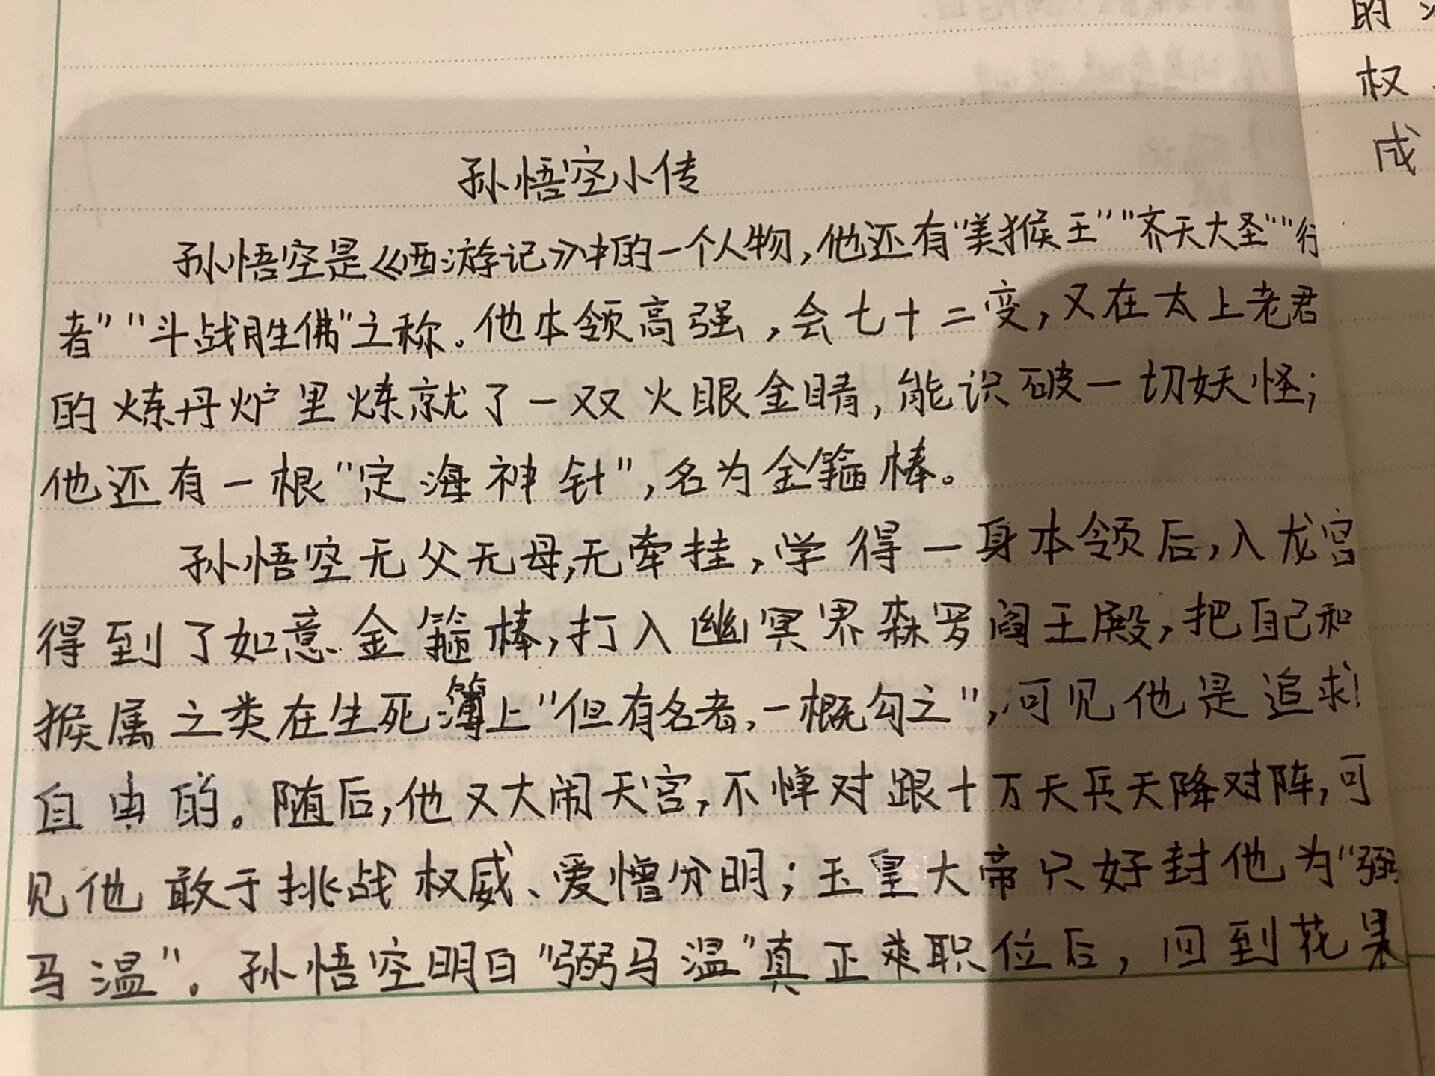 孙悟空小传
孙悟空是《西游记》中的一个人物，他还有“美猴王”“齐天大圣”“行
者”“斗战胜佛”之称。他本领高强，会七十二变，又在太上老君
的炼丹炉里炼就了一双火眼金睛，能识破一切妖怪；
他还有一根“定海神针”，名为金箍棒。
孙悟空无父无母，无牵挂，学得一身本领后，入龙宫
得到了如意金箍棒，打入幽冥界森罗阎王殿，把自己和
猴属之类在生死簿上“但有名者，一概勾之”，可见他是追求
自由的。随后，他又大闹天宫，不惮对跟十万天兵天降对阵，可
见他敢于挑战权威、爱憎分明；玉皇大帝只好封他为“弼
马温”。孙悟空明白“弼马温”真正来职位后，回到花果
的
权
成